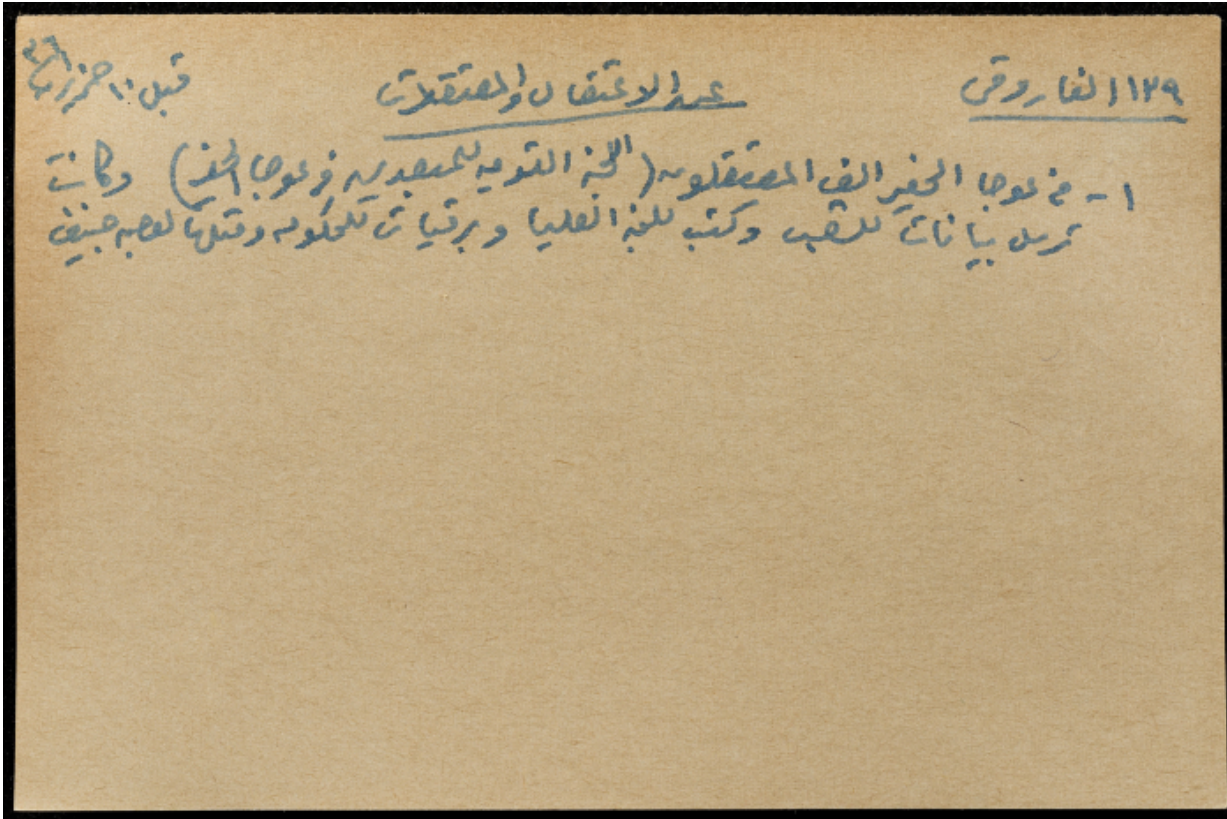 ١٣٩ الفاروقي عن الاعتقال والمعتقلات قبل ١٠ حزيران ٣٦
١- في عوجا الحفير الف المعتقلون (اللجنة القومية للمبعدين في عوجا الحفير) وكانت
ترسل بيانات للشعب وكتب للجنة العليا وبرقيات للحكومة ومثلها لعصبة جنيف